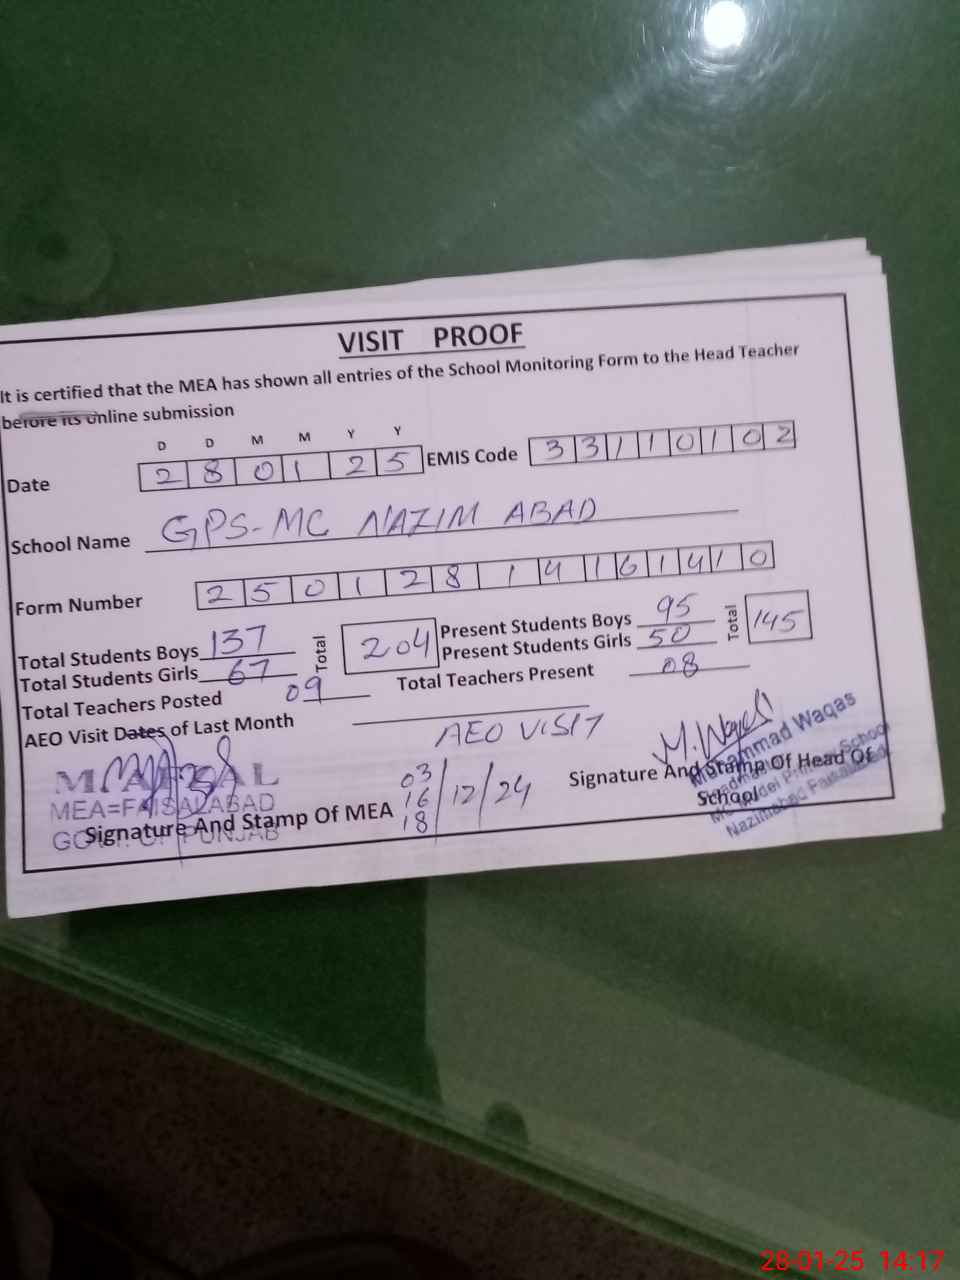 VISIT PROOF
It is certified that the MEA has shown all entries of the School Monitoring Form to the Head Teacher
before its online submission
D D M M Y Y
Date 2 8 0 1 2 5 EMIS Code 3 3 1 1 0 1 0 2
School Name GPS-MC NAZIM ABAD
Form Number 2 5 0 1 2 8 1 4 1 6 1 4 1 0
Total Students Boys 137 Total 204 Present Students Boys 95 Total 145
Total Students Girls 67 Present Students Girls 50
Total Teachers Posted 09 Total Teachers Present 08
AEO Visit Dates of Last Month
AEO VISIT
03
16 /12/24
18
MEA=FAISALABAD
GOVT: OF PUNJAB
Signature And Stamp Of MEA
M. Waqas
Muhammad Waqas
Signature And Stamp Of Head Of
School
Nazimabad Faisalabad
28-01-25 14:17